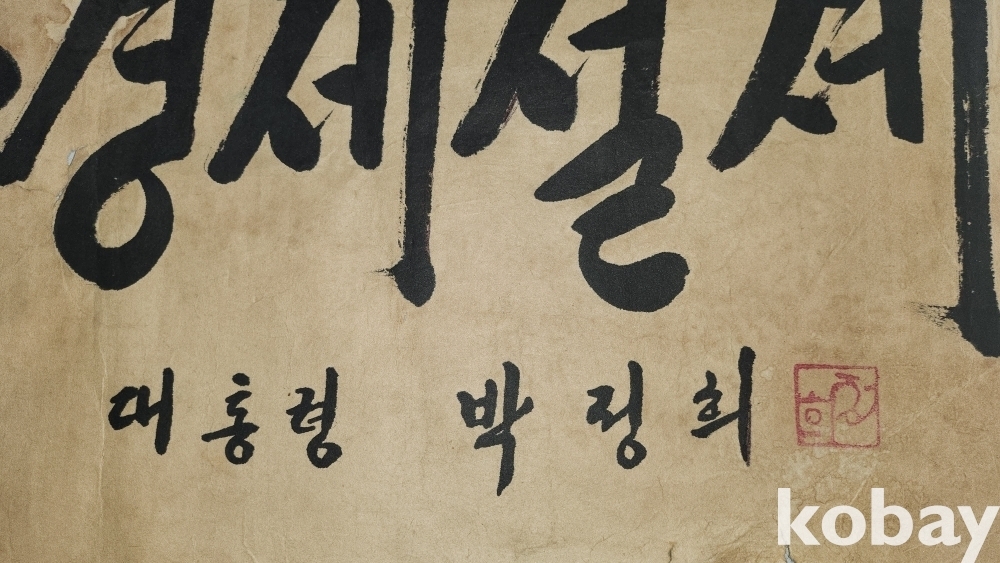 경제설계
대통령 박정희
kobay